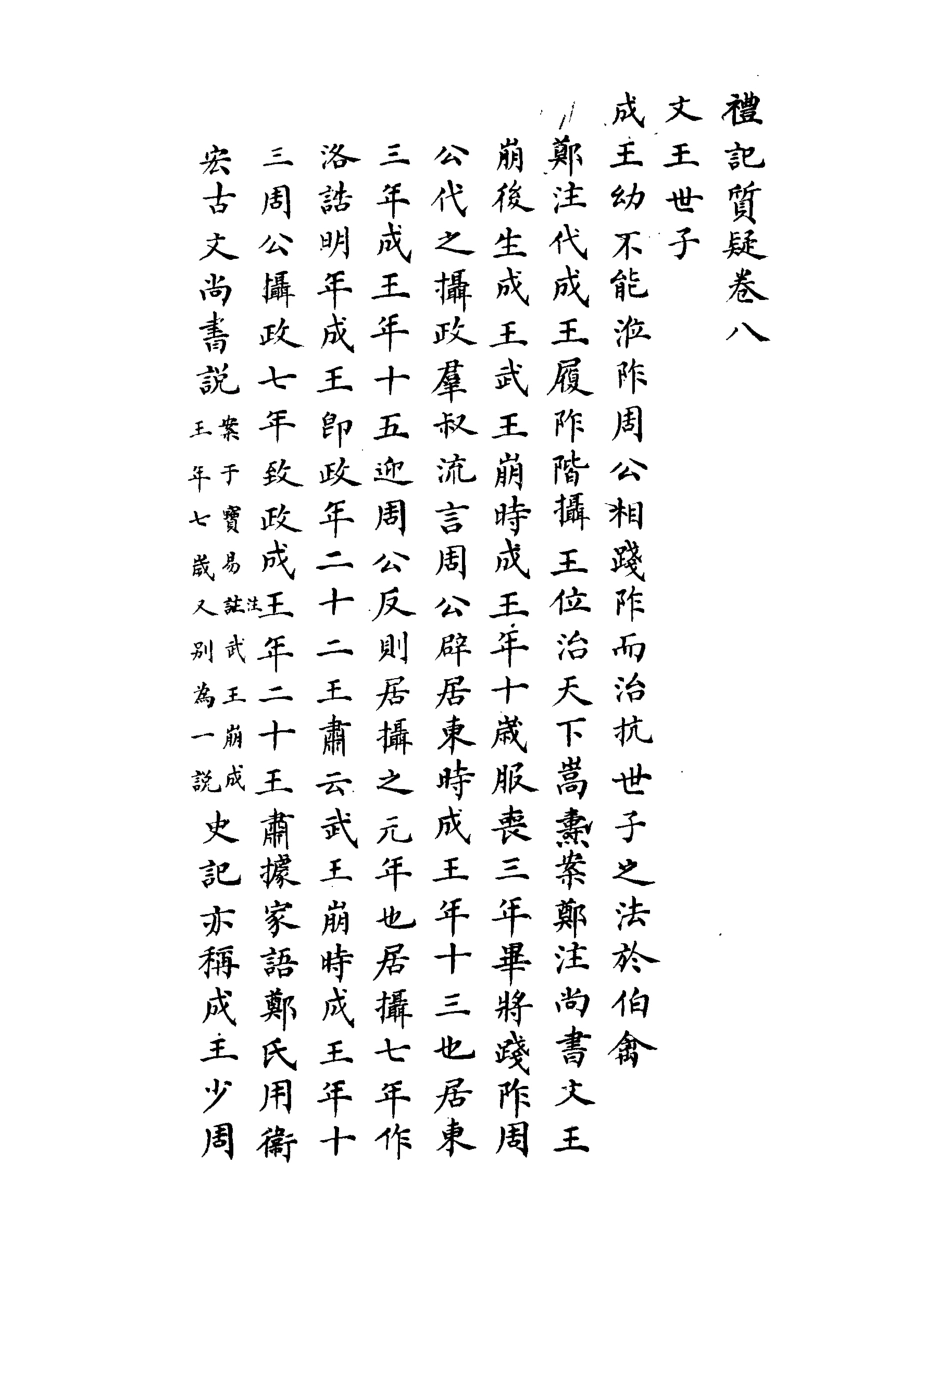 禮記質疑卷八
文王世子
成王幼不能涖阼周公相踐阼而治抗世子之法於伯禽
鄭注代成王履阼階攝王位治天下嵩燾案鄭注尚書文王
崩後生成王武王崩時成王年十歲服喪三年畢將踐阼周
公代之攝政羣叔流言周公辟居東時成王年十三也居東
三年成王年十五迎周公反則居攝之元年也居攝七年作
洛誥明年成王卽政年二十二王肅云武王崩時成王年十
三周公攝政七年致政成王年二十王肅據家語鄭氏用衞
宏古文尚書說案于寶易註注武王崩成王年七歲又別為一說史記亦稱成王少周